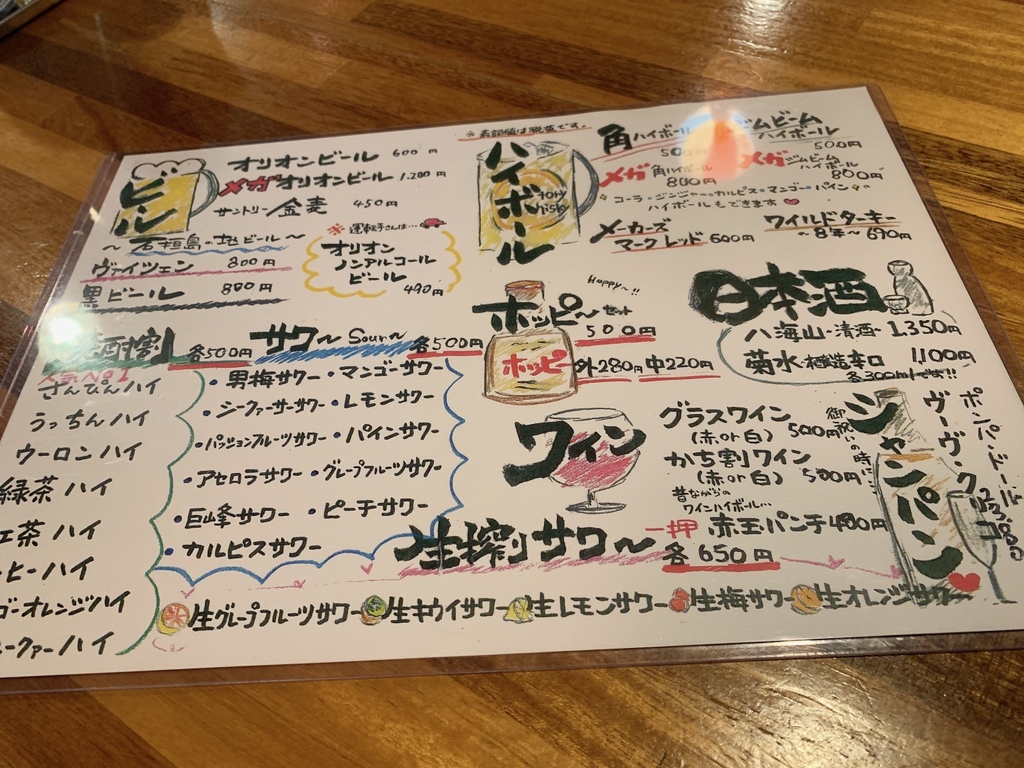 ※表記額は税抜です。
ビール
オリオンビール 600円
メガオリオンビール 1,200円
サントリー金麦 450円
〜石垣島の地ビール〜
ヴァイツェン 800円
黒ビール 800円
※運転手さんは…
オリオン
ノンアルコール
ビール
490円
ハイボール
角ハイボール
500円
ジムビーム
ハイボール
500円
メガ角ハイボール
800円
メガジムビーム
ハイボール
800円
コーラ・ジンジャー・カルピス・マンゴー・パイン
ハイボールもできます
メーカーズ
マークレッド 600円
ワイルドターキー
〜8年〜 690円
各500円
人気No1
さんぴんハイ
うっちんハイ
ウーロンハイ
緑茶ハイ
茶ハイ
ーヒーハイ
ゴーオレンジハイ
ークァーハイ
サワー Sour〜 各500円
・男梅サワー・マンゴーサワー
・シークァーサーサワー・レモンサワー
・パッションフルーツサワー・パインサワー
・アセロラサワー・グレープフルーツサワー
・巨峰サワー・ピーチサワー
・カルピスサワー
Hoppy〜!!
ホッピ〜セット
500円
ホッピー
外280円 中220円
日本酒
八海山・清酒・1,350円
菊水・醸造辛口 1,100円
各300mlです!!
ワイン
グラスワイン
(赤 or 白) 500円
かち割ワイン
(赤 or 白) 500円
昔ながらの
ワインハイボール…
一押 赤玉パンチ 480円
御祝いの時…
シャンパン
ヴーヴ・クリコ
ポンパドール
生搾りサワ〜
各650円
生グレープフルーツサワー 生キウイサワー 生レモンサワー 生梅サワー 生オレンジサワー